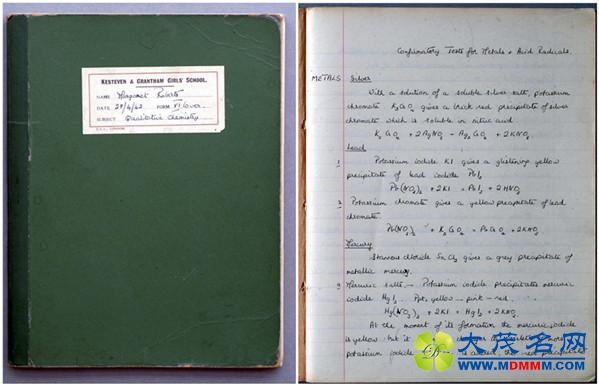 KESTEVEN & GRANTHAM GIRLS' SCHOOL.
NAME Margaret Roberts
DATE 28/4/42 FORM VI Lower
SUBJECT Qualitative Chemistry
Confirmatory Tests for Metals + Acid Radicals.
METALS Silver
With a solution of a soluble silver salt, potassium
chromate K₂CrO₄ gives a brick red precipitate of silver
chromate which is soluble in nitric acid
K₂CrO₄ + 2AgNO₃ = Ag₂CrO₄ + 2KNO₃
Lead
1 Potassium iodide KI gives a glistening yellow
precipitate of lead iodide PbI₂
Pb(NO₃)₂ + 2KI = PbI₂ + 2KNO₃
2 Potassium chromate gives a yellow precipitate of lead
chromate.
Pb(NO₃)₂ + K₂CrO₄ = PbCrO₄ + 2KNO₃
Mercury
Stannous chloride SnCl₂ gives a grey precipitate of
metallic mercury.
Mercuric salts - Potassium iodide precipitates mercuric
iodide HgI₂. Ppt. yellow - pink - red.
Hg(NO₃)₂ + 2KI = HgI₂ + 2KNO₃
At the moment of its formation the mercuric iodide
is yellow but it
potassium iodide is added, the red precipitate
大茂名网
www.MDMMM.com